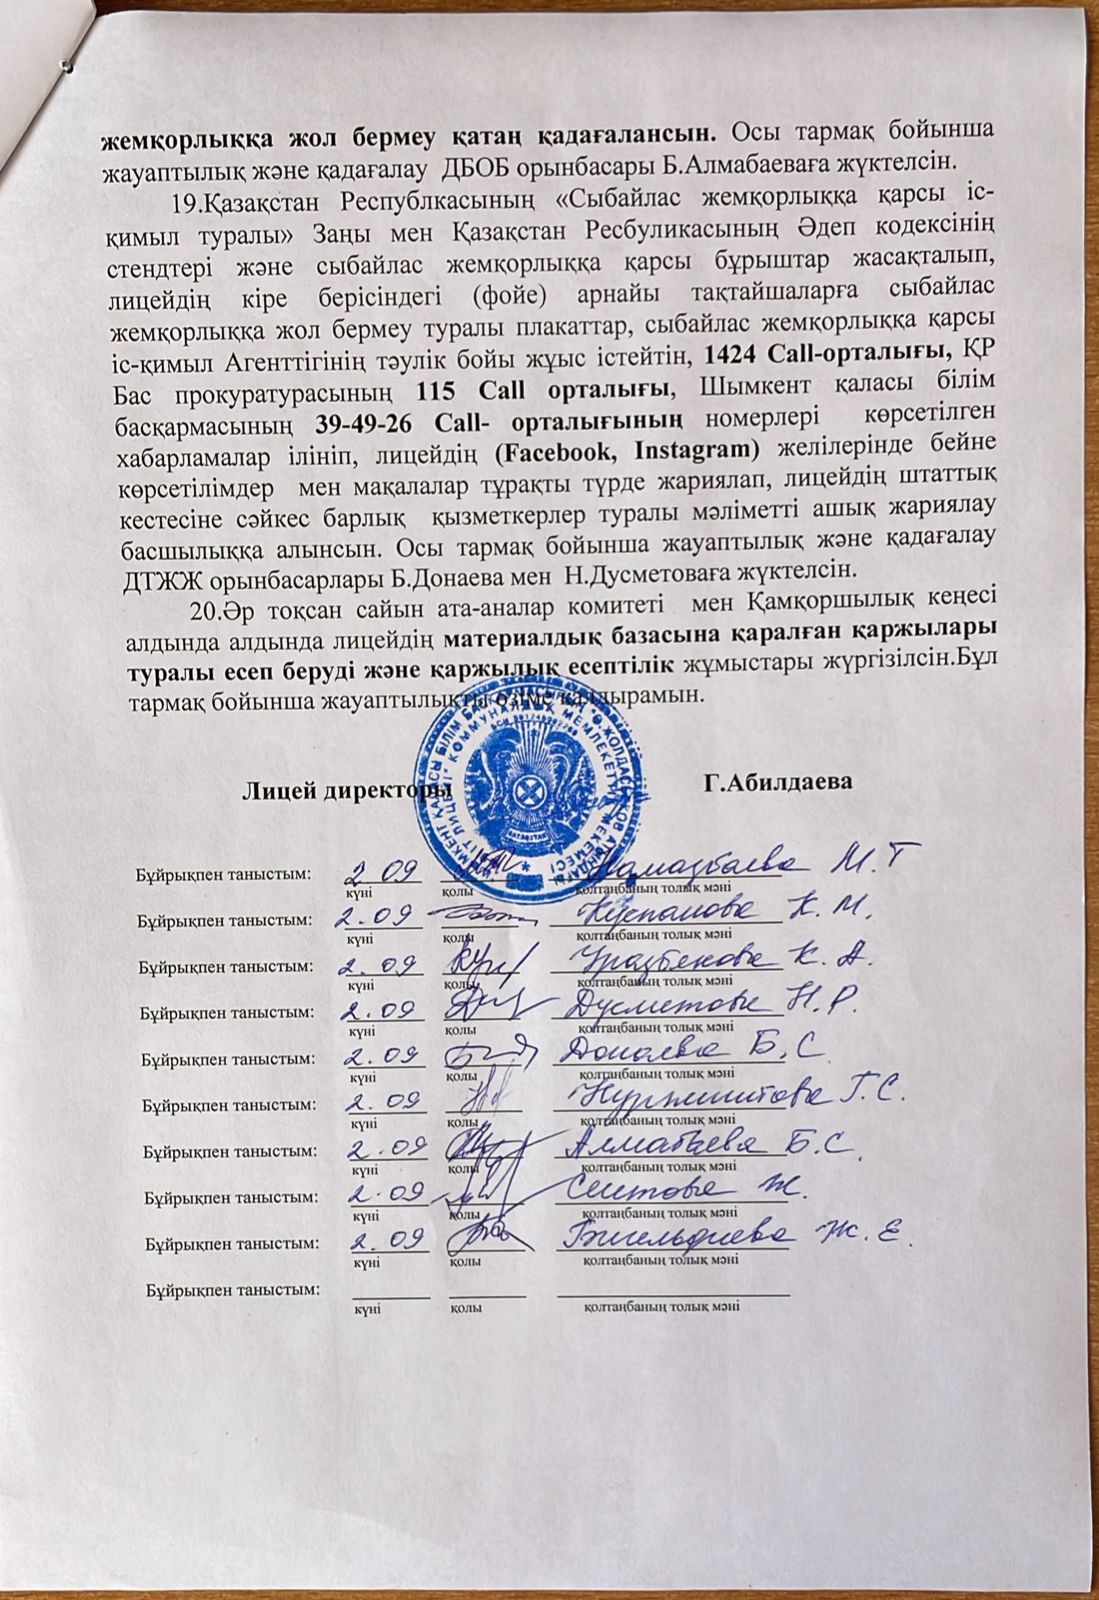 жемқорлыққа жол бермеу қатаң қадағалансын. Осы тармақ бойынша
жауаптылық және қадағалау ДБОБ орынбасары Б.Алмабаеваға жүктелсін.
19.Қазақстан Респубlкасының «Сыбайлас жемқорлыққа қарсы іс-
қимыл туралы» Заңы мен Қазақстан Ресбуликасының Әдеп кодексінің
стендтері және сыбайлас жемқорлыққа қарсы бұрыштар жасақталып,
лицейдің кіре берісіндегі (фойе) арнайы тақтайшаларға сыбайлас
жемқорлыққа жол бермеу туралы плакаттар, сыбайлас жемқорлыққа қарсы
іс-қимыл Агенттігінің тәулік бойы жұыс істейтін, 1424 Call-орталығы, ҚР
Бас прокуратурасының 115 Call орталығы, Шымкент қаласы білім
басқармасының 39-49-26 Call- орталығының номерлері көрсетілген
хабарламалар ілініп, лицейдің (Facebook, Instagram) желілерінде бейне
көрсетілімдер мен мақалалар тұрақты түрде жариялап, лицейдің штаттық
кестесіне сәйкес барлық қызметкерлер туралы мәліметті ашық жариялау
басшылыққа алынсын. Осы тармақ бойынша жауаптылық және қадағалау
ДТЖЖ орынбасарлары Б.Донаева мен Н.Дусметоваға жүктелсін.
20.Әр тоқсан сайын ата-аналар комитеті мен Қамқоршылық кеңесі
алдында алдында лицейдің материалдық базасына қаралған қаржылары
туралы есеп беруді және қаржылық есептілік жұмыстары жүргізілсін.Бұл
тармақ бойынша жауаптылықты өзіме қалдырамын.
Лицей директоры Г.Абилдаева
Бұйрықпен таныстым: 2 09 Намазбаева М.Т
күні қолы қолтаңбаның толық мәні
Бұйрықпен таныстым: 2.09 К. М.
күні қолы қолтаңбаның толық мәні
Бұйрықпен таныстым: 2.09 Уразбекова К. А.
күні қолы қолтаңбаның толық мәні
Бұйрықпен таныстым: 2.09 Дусметова Н.Р.
күні қолы қолтаңбаның толық мәні
Бұйрықпен таныстым: 2.09 Донаева Б.С
күні қолы қолтаңбаның толық мәні
Бұйрықпен таныстым: 2.09 Г.С.
күні қолы қолтаңбаның толық мәні
Бұйрықпен таныстым: 2.09 Алмабаева Б.С
күні қолы қолтаңбаның толық мәні
Бұйрықпен таныстым: 2.09 Сеитова Ж.
күні қолы қолтаңбаның толық мәні
Бұйрықпен таныстым: 2.09 Ж. Е.
күні қолы қолтаңбаның толық мәні
Бұйрықпен таныстым:
күні қолы қолтаңбаның толық мәні